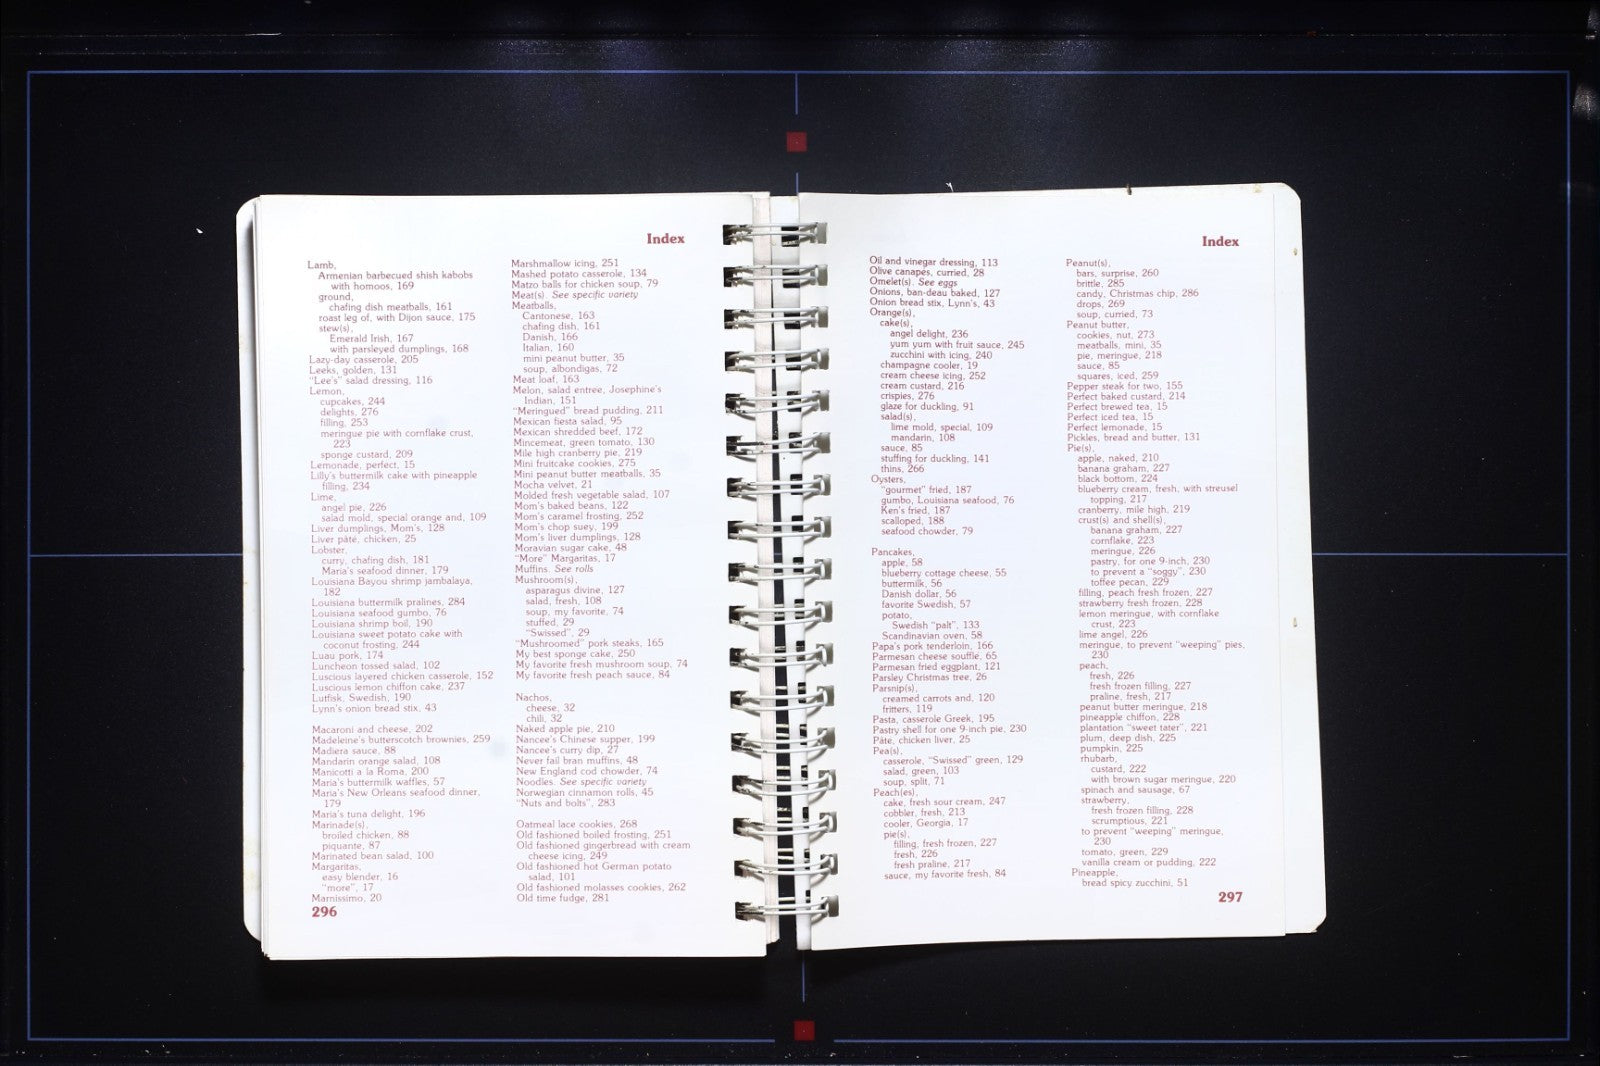 Index
Lamb,
Armenian barbecued shish kabobs
with homoos, 169
ground,
chafing dish meatballs, 161
roast leg of, with Dijon sauce, 175
stew(s),
Emerald Irish, 167
with parsleyed dumplings, 168
Lazy-day casserole, 205
Leeks, golden, 131
"Lee's" salad dressing, 116
Lemon,
cupcakes, 244
delights, 276
filling, 253
meringue pie with cornflake crust,
223
sponge custard, 209
Lemonade, perfect, 15
Lilly's buttermilk cake with pineapple
filling, 234
Lime,
angel pie, 226
salad mold, special orange and, 109
Liver dumplings, Mom's, 128
Liver pâté, chicken, 25
Lobster,
curry, chafing dish, 181
Maria's seafood dinner, 179
Louisiana Bayou shrimp jambalaya,
182
Louisiana buttermilk pralines, 284
Louisiana seafood gumbo, 76
Louisiana shrimp boil, 190
Louisiana sweet potato cake with
coconut frosting, 244
Luau pork, 174
Luncheon tossed salad, 102
Luscious layered chicken casserole, 152
Luscious lemon chiffon cake, 237
Lutfisk, Swedish, 190
Lynn's onion bread stix, 43
Macaroni and cheese, 202
Madeleine's butterscotch brownies, 259
Madiera sauce, 88
Mandarin orange salad, 108
Manicotti a la Roma, 200
Maria's buttermilk waffles, 57
Maria's New Orleans seafood dinner,
179
Maria's tuna delight, 196
Marinade(s),
broiled chicken, 88
piquante, 87
Marinated bean salad, 100
Margaritas,
easy blender, 16
"more", 17
Marnissimo, 20
296
Marshmallow icing, 251
Mashed potato casserole, 134
Matzo balls for chicken soup, 79
Meat(s). See specific variety
Meatballs,
Cantonese, 163
chafing dish, 161
Danish, 166
Italian, 160
mini peanut butter, 35
soup, albondigas, 72
Meat loaf, 163
Melon, salad entree, Josephine's
Indian, 151
"Meringued" bread pudding, 211
Mexican fiesta salad, 95
Mexican shredded beef, 172
Mincemeat, green tomato, 130
Mile high cranberry pie, 219
Mini fruitcake cookies, 275
Mini peanut butter meatballs, 35
Mocha velvet, 21
Molded fresh vegetable salad, 107
Mom's baked beans, 122
Mom's caramel frosting, 252
Mom's chop suey, 199
Mom's liver dumplings, 128
Moravian sugar cake, 48
"More" Margaritas, 17
Muffins. See rolls
Mushroom(s),
asparagus divine, 127
salad, fresh, 108
soup, my favorite, 74
stuffed, 29
"Swissed", 29
"Mushroomed" pork steaks, 165
My best sponge cake, 250
My favorite fresh mushroom soup, 74
My favorite fresh peach sauce, 84
Nachos,
cheese, 32
chili, 32
Naked apple pie, 210
Nancee's Chinese supper, 199
Nancee's curry dip, 27
Never fail bran muffins, 48
New England cod chowder, 74
Noodles. See specific variety
Norwegian cinnamon rolls, 45
"Nuts and bolts", 283
Oatmeal lace cookies, 268
Old fashioned boiled frosting, 251
Old fashioned gingerbread with cream
cheese icing, 249
Old fashioned hot German potato
salad, 101
Old fashioned molasses cookies, 262
Old time fudge, 281
Index
Oil and vinegar dressing, 113
Olive canapes, curried, 28
Omelet(s). See eggs
Onions, ban-deau baked, 127
Onion bread stix, Lynn's, 43
Orange(s),
cake(s),
angel delight, 236
yum yum with fruit sauce, 245
zucchini with icing, 240
champagne cooler, 19
cream cheese icing, 252
cream custard, 216
crispies, 276
glaze for duckling, 91
salad(s),
lime mold, special, 109
mandarin, 108
sauce, 85
stuffing for duckling, 141
thins, 266
Oysters,
"gourmet" fried, 187
gumbo, Louisiana seafood, 76
Ken's fried, 187
scalloped, 188
seafood chowder, 79
Pancakes,
apple, 58
blueberry cottage cheese, 55
buttermilk, 56
Danish dollar, 56
favorite Swedish, 57
potato,
Swedish "palt", 133
Scandinavian oven, 58
Papa's pork tenderloin, 166
Parmesan cheese souffle, 65
Parmesan fried eggplant, 121
Parsley Christmas tree, 26
Parsnip(s),
creamed carrots and, 120
fritters, 119
Pasta, casserole Greek, 195
Pastry shell for one 9-inch pie, 230
Pâte, chicken liver, 25
Pea(s),
casserole, "Swissed" green, 129
salad, green, 103
soup, split, 71
Peach(es),
cake, fresh sour cream, 247
cobbler, fresh, 213
cooler, Georgia, 17
pie(s),
filling, fresh frozen, 227
fresh, 226
fresh praline, 217
sauce, my favorite fresh, 84
Peanut(s),
bars, surprise, 260
brittle, 285
candy, Christmas chip, 286
drops, 269
soup, curried, 73
Peanut butter,
cookies, nut, 273
meatballs, mini, 35
pie, meringue, 218
sauce, 85
squares, iced, 259
Pepper steak for two, 155
Perfect baked custard, 214
Perfect brewed tea, 15
Perfect iced tea, 15
Perfect lemonade, 15
Pickles, bread and butter, 131
Pie(s),
apple, naked, 210
banana graham, 227
black bottom, 224
blueberry cream, fresh, with streusel
topping, 217
cranberry, mile high, 219
crust(s) and shell(s),
banana graham, 227
cornflake, 223
meringue, 226
pastry, for one 9-inch, 230
to prevent a "soggy", 230
toffee pecan, 229
filling, peach fresh frozen, 227
strawberry fresh frozen, 228
lemon meringue, with cornflake
crust, 223
lime angel, 226
meringue, to prevent "weeping" pies,
230
peach,
fresh, 226
fresh frozen filling, 227
praline, fresh, 217
peanut butter meringue, 218
pineapple chiffon, 228
plantation "sweet tater", 221
plum, deep dish, 225
pumpkin, 225
rhubarb,
custard, 222
with brown sugar meringue, 220
spinach and sausage, 67
strawberry,
fresh frozen filling, 228
scrumptious, 221
to prevent "weeping" meringue,
230
tomato, green, 229
vanilla cream or pudding, 222
Pineapple,
bread spicy zucchini, 51
297